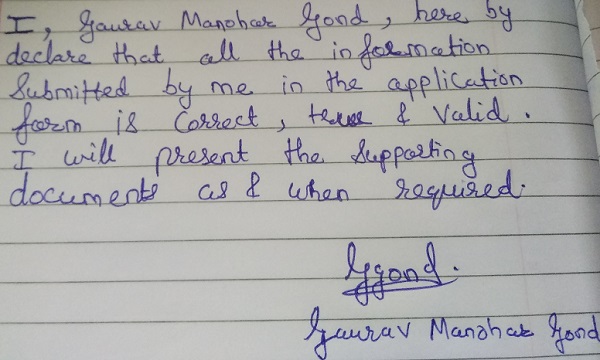 I, Gaurav Manohar Gond, here by
declare that all the information
Submitted by me in the application
form is Correct, true & Valid.
I will present the Supporting
documents as & when required.
Ggond.
Gaurav Manohar Gond